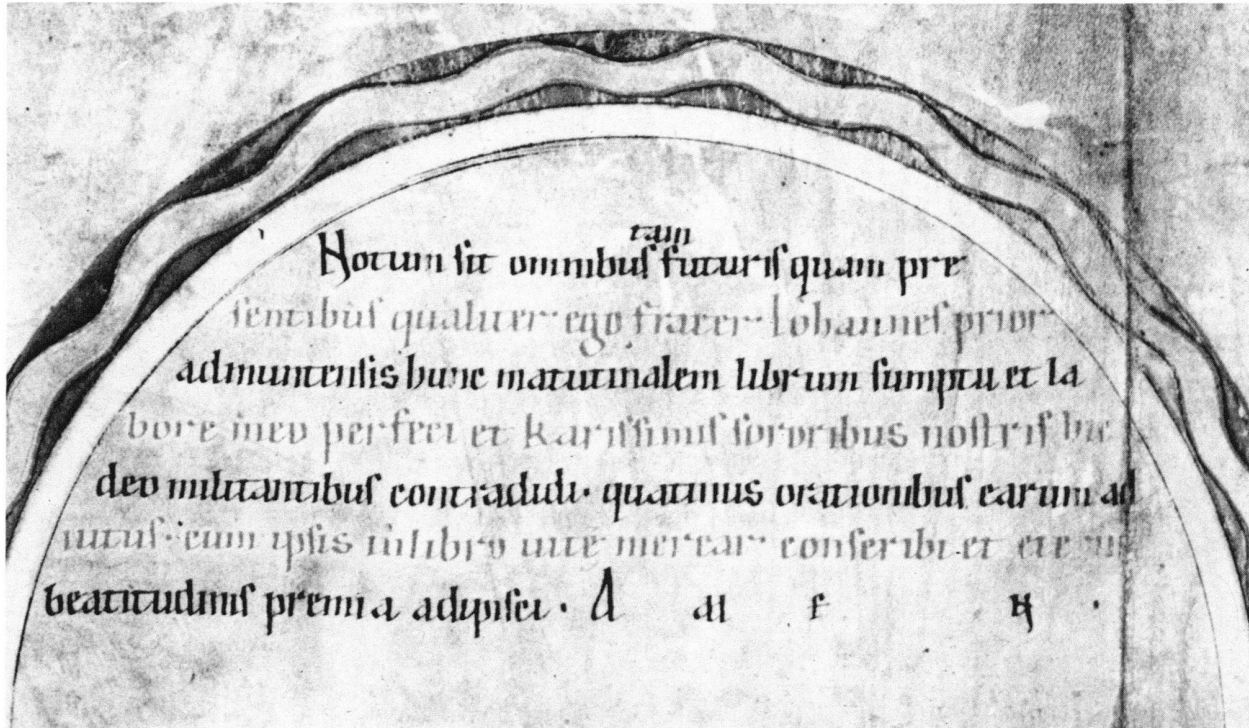 tam
Notum sit omnibus futuris quam pre
sentibus qualiter ego frater Iohannes prior
admuntensis hunc matutinalem librum sumptu et la
bore meo perfeci et karissimis sororibus nostris hic
deo militantibus contradidi. quatinus orationibus earum ad
iutus. cum ipsis in libro uite merear conscribi et eterne
beatitudinis premia adipisci. A M E N .